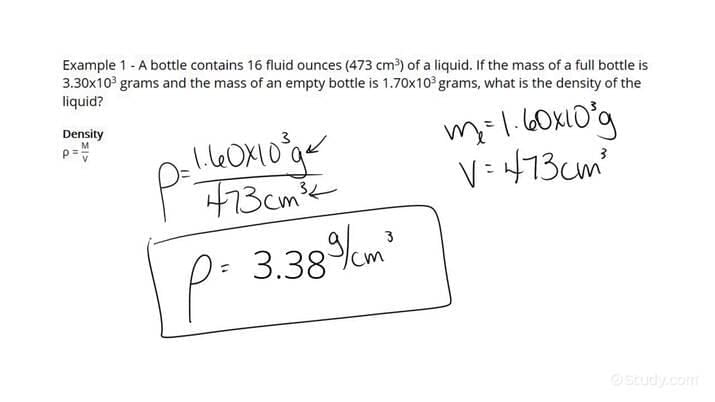 Example 1 - A bottle contains 16 fluid ounces (473 cm³) of a liquid. If the mass of a full bottle is
3.30x10³ grams and the mass of an empty bottle is 1.70x10³ grams, what is the density of the
liquid?
Density
ρ = M/V
ρ = 1.60x10³g / 473cm³
ρ = 3.38 g/cm³
mₗ = 1.60x10³g
V = 473cm³
©Study.com